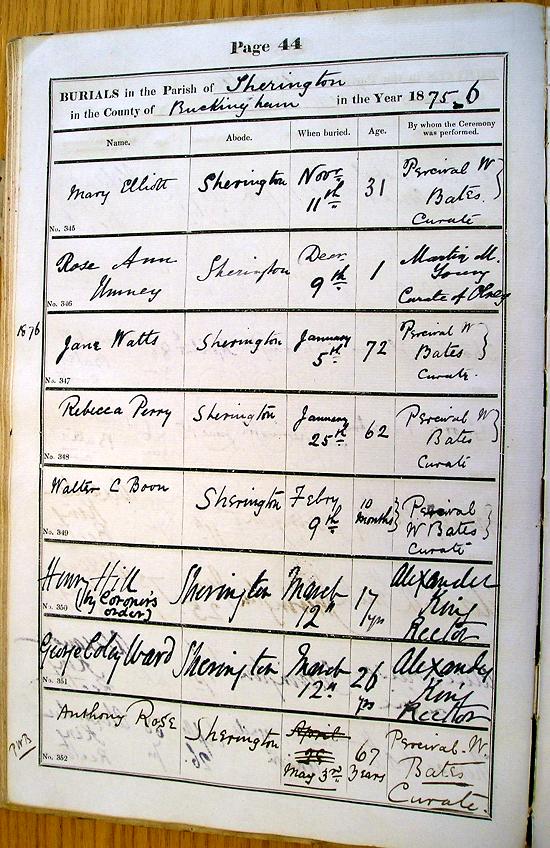 Page 44
BURIALS in the Parish of Sherington
in the County of Buckingham in the Year 1875-6
Name. Abode. When buried. Age. By whom the Ceremony was performed.
Mary Elliott Sherington Novr 11th 31 Percival W Bates Curate
No. 345
Rose Ann Umney Sherington Decr 9th 1 Martin M. Young Curate of Olney
No. 346
1876
Jane Watts Sherington January 5th 72 Percival W Bates Curate
No. 347
Rebecca Perry Sherington January 25th 62 Percival W Bates Curate
No. 348
Walter C Boon Sherington Febry 9th 10 months Percival W Bates Curate
No. 349
Henry Hill (by Coroner's order) Sherington March 12th 17 yrs Alexander King Rector
No. 350
George Coley Ward Sherington March 12th 26 yrs Alexander King Rector
No. 351
Anthony Rose Sherington April 25 May 3rd 67 years Percival W. Bates Curate.
No. 352
PWB